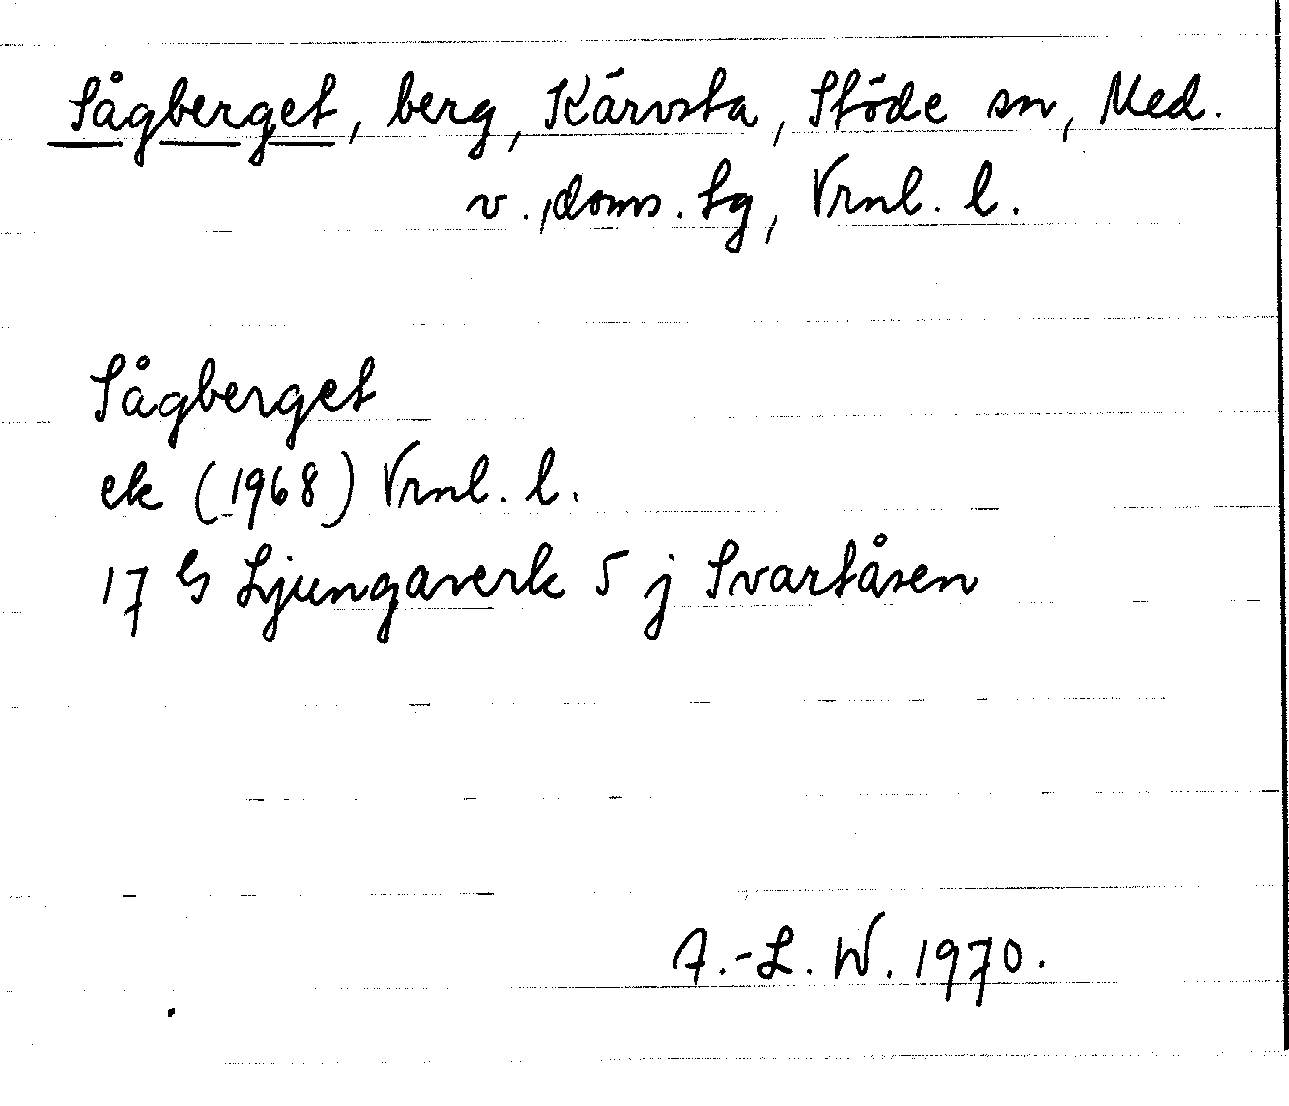 Sågberget, berg, Kärvsta, Stöde sn, Med.
v., doms. sg, Vrnl. l.
Sågberget
ek (1968) Vrnl. l.
17 G Ljungaverk 5 j Svartåsen
A.-L. W. 1970.